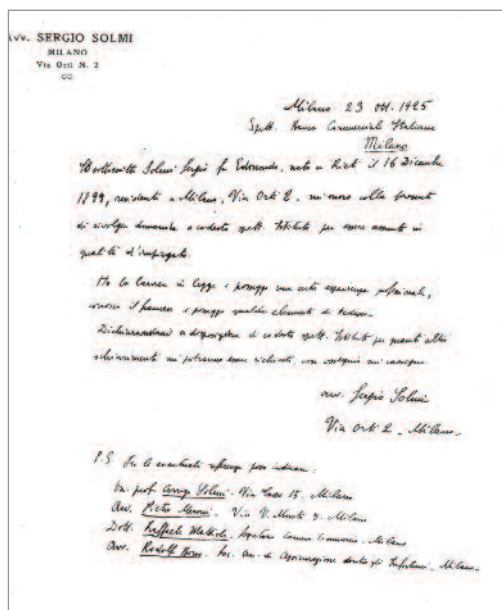 Avv. SERGIO SOLMI
MILANO
Via Orti N. 2
Milano 23 ott. 1925
Spett. Banca Commerciale Italiana
Milano
Il sottoscritto Solmi Sergio fu Edmondo, nato a Rieti il 16 Dicembre
1899, residente a Milano, Via Orti 2, mi onoro colla presente
di rivolgere domanda a codesto spett. Istituto per essere assunto in
qualità d'impiegato.
Ho la laurea in legge e posseggo una certa esperienza professionale,
conosco il francese e posseggo qualche elemento di tedesco.
Dichiarandomi a disposizione di codesto spett. Istituto per quanti altri
schiarimenti mi potranno essere richiesti, con ossequio mi rassegno
avv. Sergio Solmi
Via Orti 2 - Milano -
P.S. Per le eventuali referenze posso indicare:
On. prof. Arrigo Solmi - Via 15 - Milano
Avv. Pietro - Via V. Monti - Milano
Dott. Raffaele Mattioli - Camera Commercio - Milano
Avv. Rodolfo - Soc. An. di Assicurazione contro gli Infortuni - Milano -